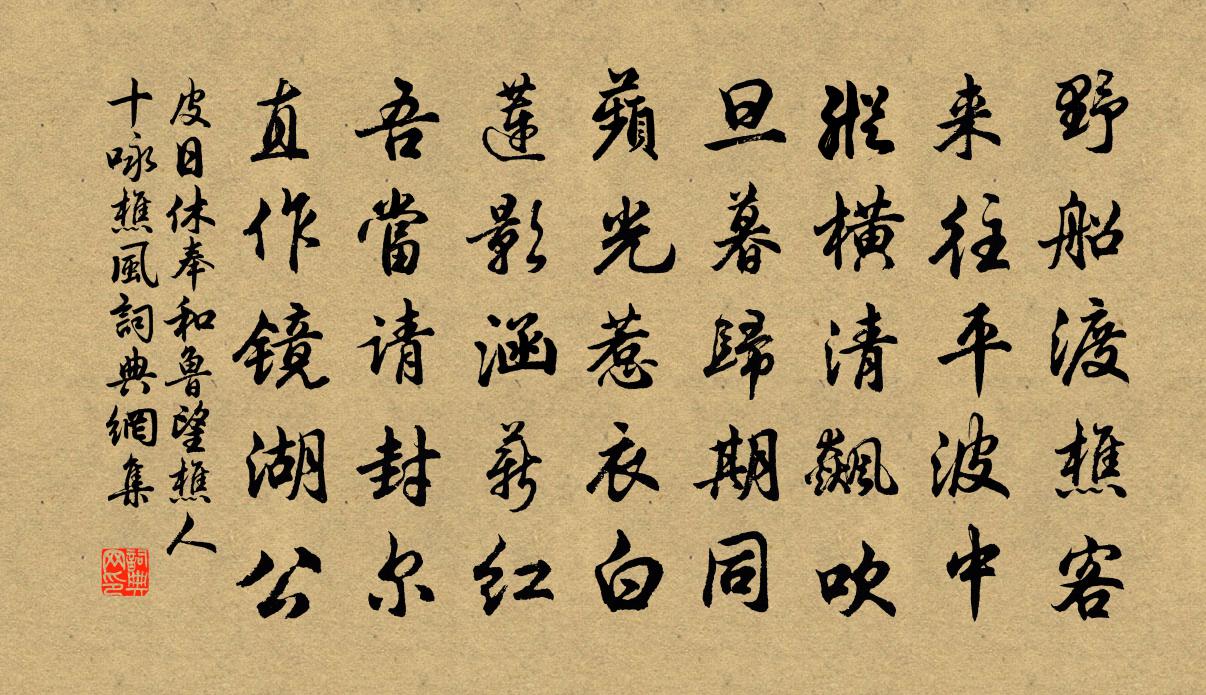 野船渡樵客
来往平波中
縱橫清飙吹
旦暮歸期同
蘋光惹衣白
蓮影涵薪红
吾當请封尔
直作镜湖公
皮日休奉和魯望樵人
十咏樵風詞典網集
詞典网印